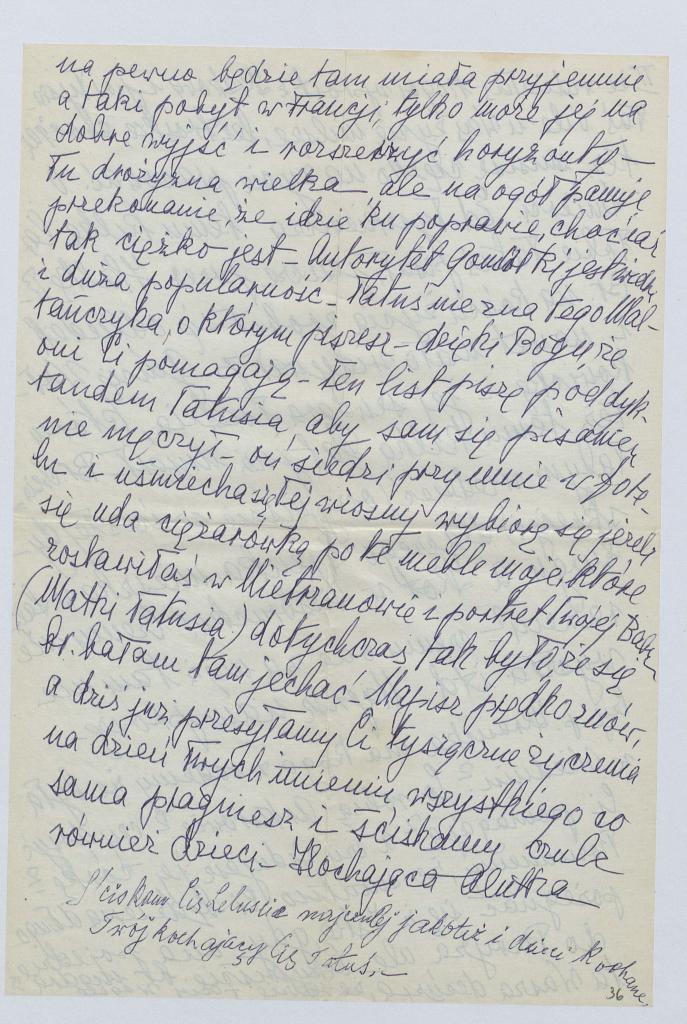 na pewno będzie tam miała przyjemnie
a taki pobyt w Francji, tylko może jej na
dobre wyjść i rozszerzyć horyzonty –
Tu drożyzna wielka, ale na ogół panuje
przekonanie, że idzie ku poprawie, chociaż
tak ciężko jest – Autorytet Gomułki jest
i duża popularność – Tatuś nie zna tego Mal-
tańczyka, o którym piszesz – dzięki Bogu, że
oni Ci pomagają – Ten list piszę pod dyk-
tandem Tatusia, aby sam się pisaniem
nie męczył – on siedzi przy mnie w fote-
lu i uśmiecha się. Tej wiosny wybiorę się jeżeli
się uda ciężarówką po te meble moje, które
zostawiłaś w Mietrzanowie i portret Twojej Babki
(Matki Tatusia) dotychczas tak było, że się
b. bałam tam jechać – Napisz prędko znów,
a dziś już przesyłamy Ci tysiączne życzenia
na dzień Twych imienin, wszystkiego co
sama pragniesz i ściskamy czule
również dzieci – Kochająca
Ściskam Cię najczulej jakoteż i dzieci kochane
Twój kochający Cię Tatuś. –
36